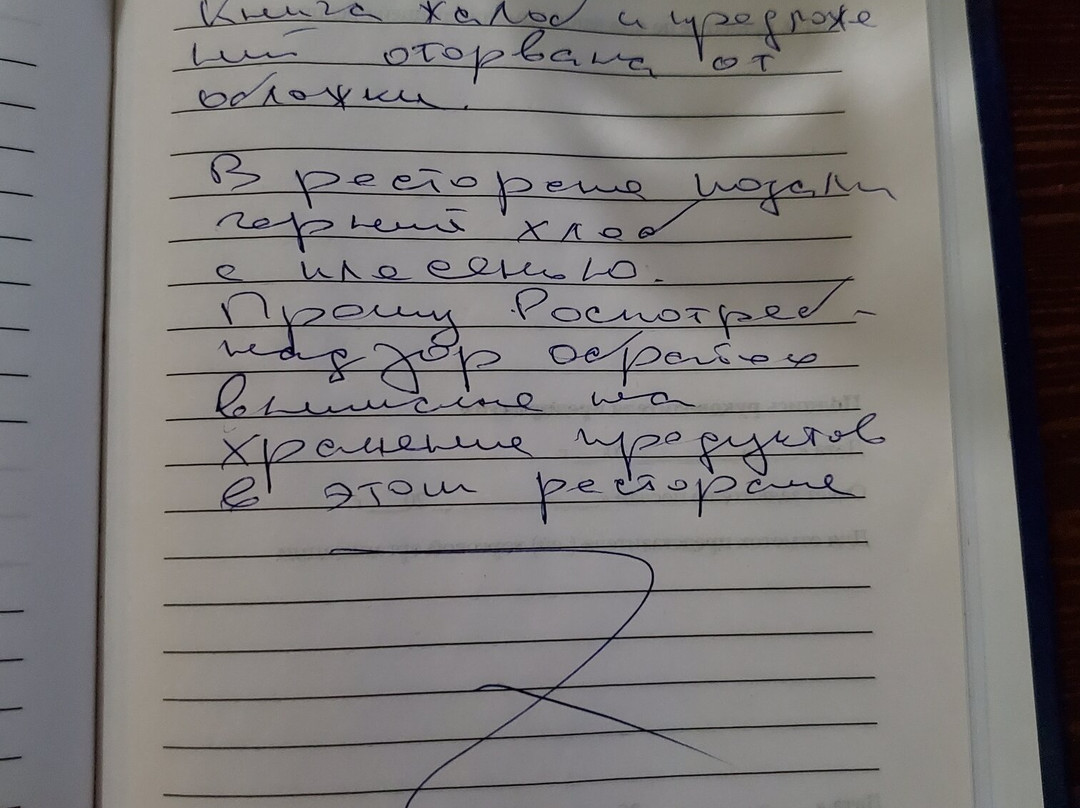 Книга жалоб и предложе
ний оторвана от
обложки.
В ресторане подали
чёрный хлеб
с плесенью.
Прошу Роспотреб-
надзор обратить
внимание на
хранение продуктов
в этом ресторане